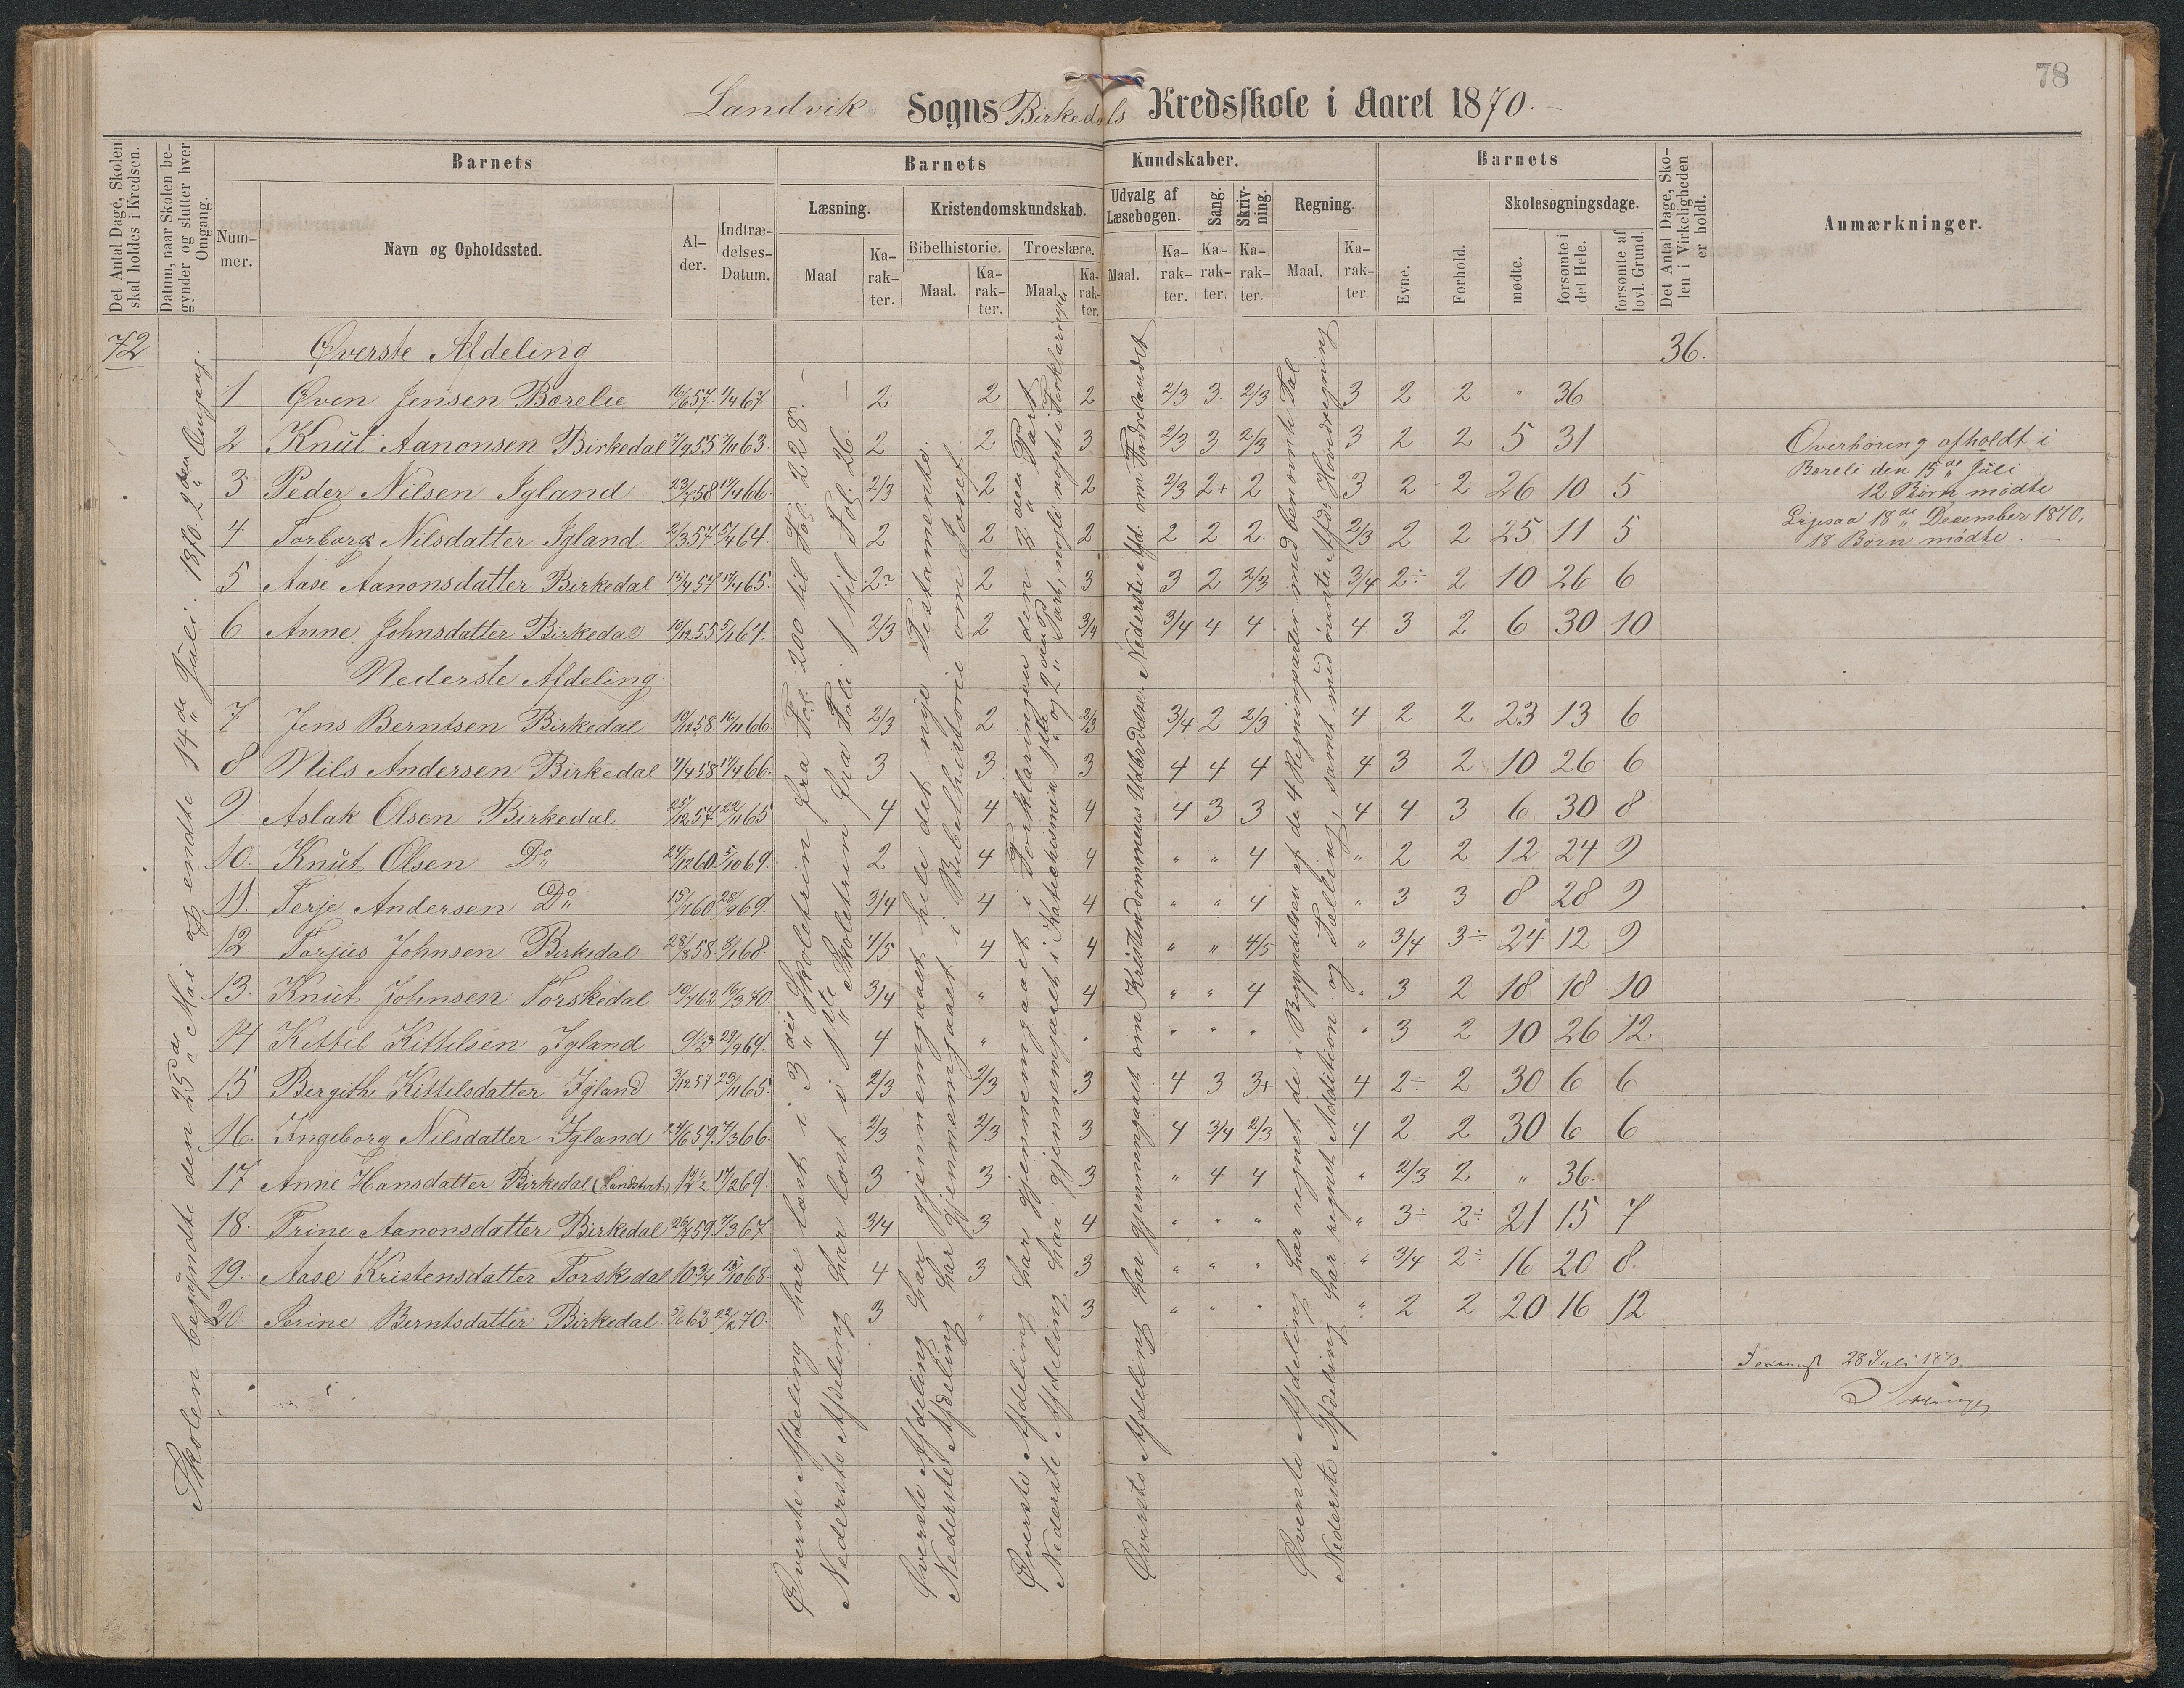 78
Landvik Sogns Birkedals Kredsskole i Aaret 1870.
Det Antal Dage, Skolen skal holdes i Kredsen.
Datum, naar Skolen begynder og slutter hver Omgang.
Barnets
Barnets Kundskaber.
Barnets
Det Antal Dage, Skolen i Virkeligheden er holdt.
Anmærkninger.
Nummer.
Navn og Opholdssted.
Alder.
Indtrædelses-Datum.
Læsning.
Kristendomskundskab.
Udvalg af Læsebogen.
Sang.
Skrivning.
Regning.
Evne.
Forhold.
Skolesøgningsdage.
Maal
Karakter.
Bibelhistorie.
Troeslære.
Maal.
Karakter.
Maal.
Karakter.
Maal.
Karakter.
Karakter.
Karakter.
Maal.
Karakter
mødte.
forsømte i det Hele.
forsømte af lovl. Grund.
72 Øverste Afdeling 36.
1 Øven Jensen Borelie 16/6 57. 1/4 67. 2. 2 2 2/3 3. 2/3 3 2 2 " 36
2 Knut Aanonsen Birkedal 7/9 55 7/11 63. 2 2 3 2/3 3 2/3 3 2 2 5 31
3 Peder Nilsen Igland 23/7 58 17/4 66. 2/3 2 2 2/3 2+ 2 3 2 2 26 10 5
4. Torborg Nilsdatter Igland 2/3 57 5/4 64. 2 2 2 2 2 2. 2/3 2 2 25 11 5
5 Aase Aanonsdatter Birkedal 15/4 57 17/4 65. 2? 2 3 3 2 2/3 3/4 2÷ 2 10 26 6
6 Anne Johnsdatter Birkedal 10/12 55 5/1 64. 2/3 2 3/4 3/4 4 4 4 3 2 6 30 10
Nederste Afdeling.
7 Jens Berntsen Birkedal 10/12 58 16/11 66. 2/3 2 2/3 3/4 2 2/3 4 2 2 23 13 6
8 Nils Andersen Birkedal 7/4 58 17/4 66. 3 3 3 4 4 4 4 3 2 10 26 6
9 Aslak Olsen Birkedal 25/12 57. 22/11 65 4 4 4 4 3 3 4 4 3 6 30 8
10. Knut Olsen Do 24/12 60. 5/10 69. 2 4 4 " " 4 " 2 2 12 24 9
11. Terje Andersen Do 15/7 60 28/9 69. 3/4 4 4 " " 4 " 3 3 8 28 9
12. Torjus Johnsen Birkedal 28/8 58. 8/1 68. 4/5 4 4 " " 4/5 " 3/4 3÷ 24 12 9
13. Knut Johnsen Torskedal 10/7 62 16/3 70 3/4 " 4 " " 4 " 3 2 18 18 10
14 Kittil Kittilsen Igland 9 1/2 29/9 69. 4 " " " " " " 3 2 10 26 12
15 Bergithe Kittilsdatter Igland 3/12 57 23/11 65. 2/3 2/3 3 4 3 3+ 4 2÷ 2 30 6 6
16. Ingeborg Nilsdatter Igland 24/6 59. 7/3 66. 2/3 2/3 3 4 3/4 2/3 4 2 2 30 6 6
17 Anne Hansdatter Birkedal 12 1/2 17/2 69. 3 3 3 " 4 4 " 2/3 2 " 36.
18. Trine Aanonsdatter Birkedal 26/7 59. 7/3 67 3/4 3 4 " " " " 3÷ 2÷ 21 15 7
19. Aase Kristensdatter Torskedal 10 3/4 15/10 68. 4 3 3 " " " " 3/4 2÷ 16 20 8.
20. Serine Berntsdatter Birkedal. 5/6 62 22/2 70. 3 " 3 " " " " 2 2 20 16 12
Skolen begyndte den 25de Mai og endte 14de Juli. 1870. 2den Omgang.
Øverste Afdeling har læst i 3die Skoletrin fra Fol. 200 til Fol. 228.
Nederste Afdeling har læst i 1ste Skoletrin fra Foli. 1 til Fol. 26.
Øverste Afdeling har gjennemgaaet hele det nye Testamente.
Nederste Afdeling har gjennemgaaet i Bibelhistorie om Josef.
Øverste Afdeling har gjennemgaaet i Forklaringen den 3den Part
Nederste Afdeling har gjennemgaaet i Katekismen 1ste og 2den Part, nogle noget i Forklaringen
Øverste Afdeling har gjennemgaaet om Kristendommens Udbredelse. Nederste Afd. om Fædrelandet
Øverste Afdeling har regnet de i Begyndelsen af de 4 Regningsarter med benævnte Tal
Nederste Afdeling har regnet Addition og Tælling, samt med øverste Afd. Hovedregning
Overhøring afholdt i
Boreli den 15de Juli
12 Børn mødte
18de December 1870,
18 Børn mødte. —
28 Juli 1870.